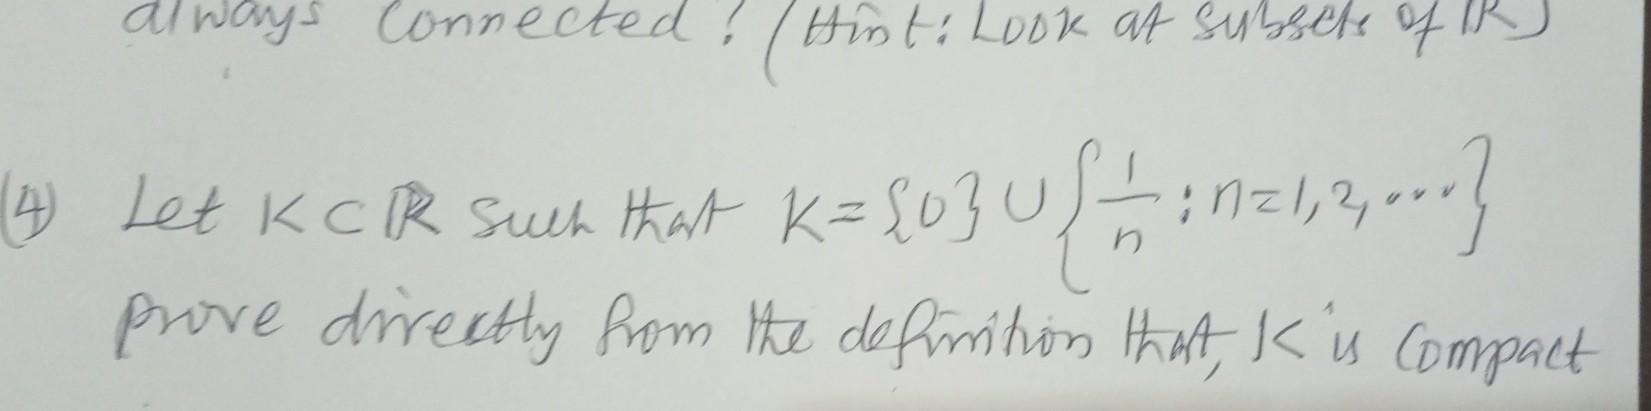 always connected? (Hint: Look at subsets of ℝ)
(4) Let K ⊂ ℝ such that K = {0} ∪ {1/n : n = 1, 2, ....}
prove directly from the definition that, K is compact